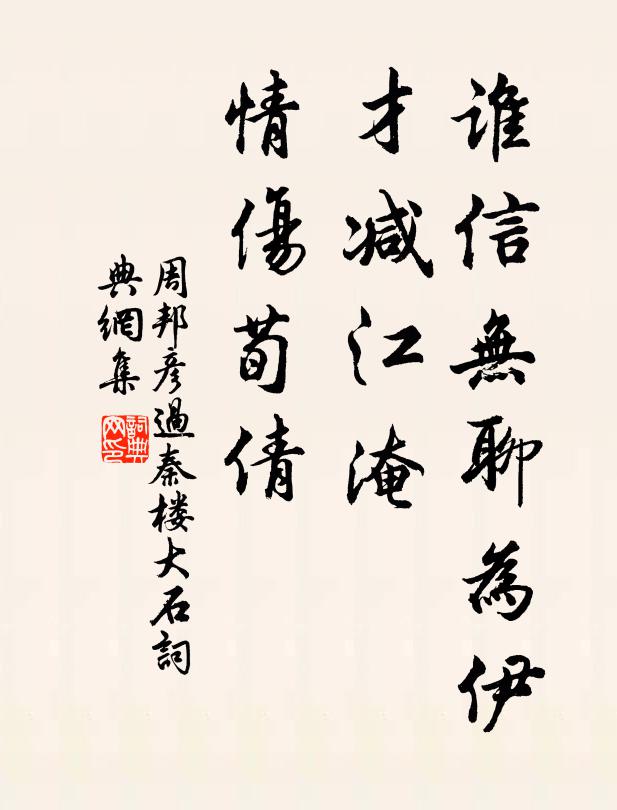 谁信無聊為伊
才减江淹
情傷荀倩
周邦彦過秦楼大石詞
典網集
詞典网印